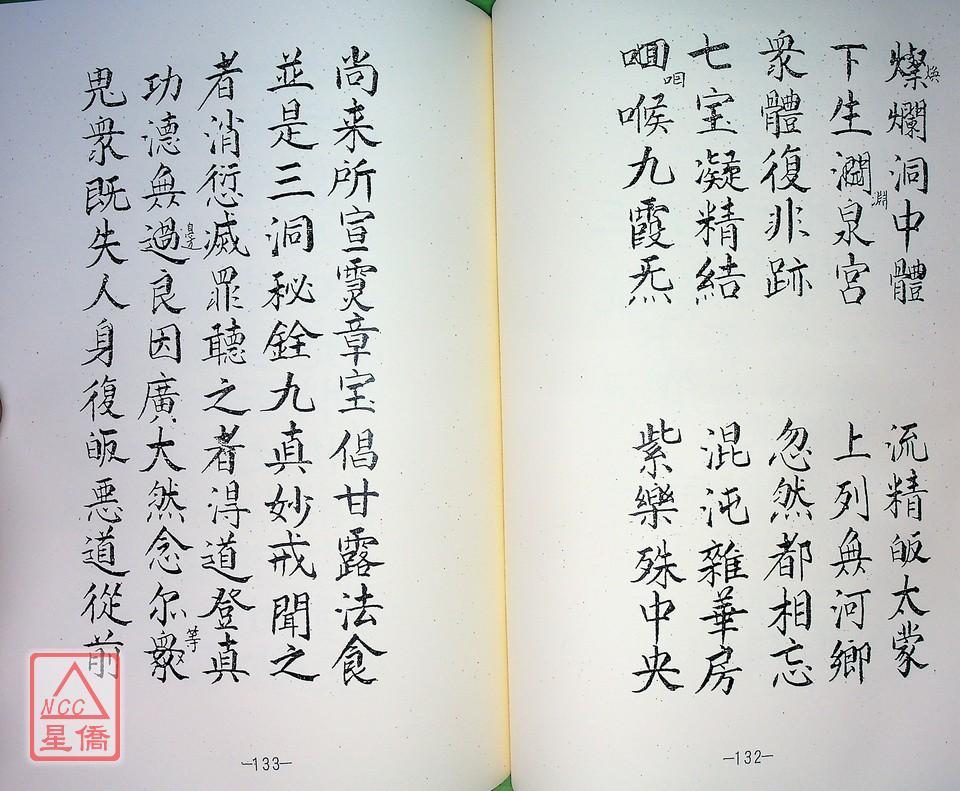 燦爛洞中體　流精皈太蒙
煥
下生澗泉宮　上列無河鄉
淵
衆體復非跡　忽然都相忘
七宝凝精結　混沌雜華房
咽喉九霞炁　紫樂殊中央
咽
-132-
尚来所宣霛章宝偈甘露法食
並是三洞秘銓九真妙戒聞之
者消愆滅罪聽之者得道登真
功德無過良因廣大然念尔衆
邊
等
鬼衆既失人身復皈惡道從前
-133-
NCC
星僑